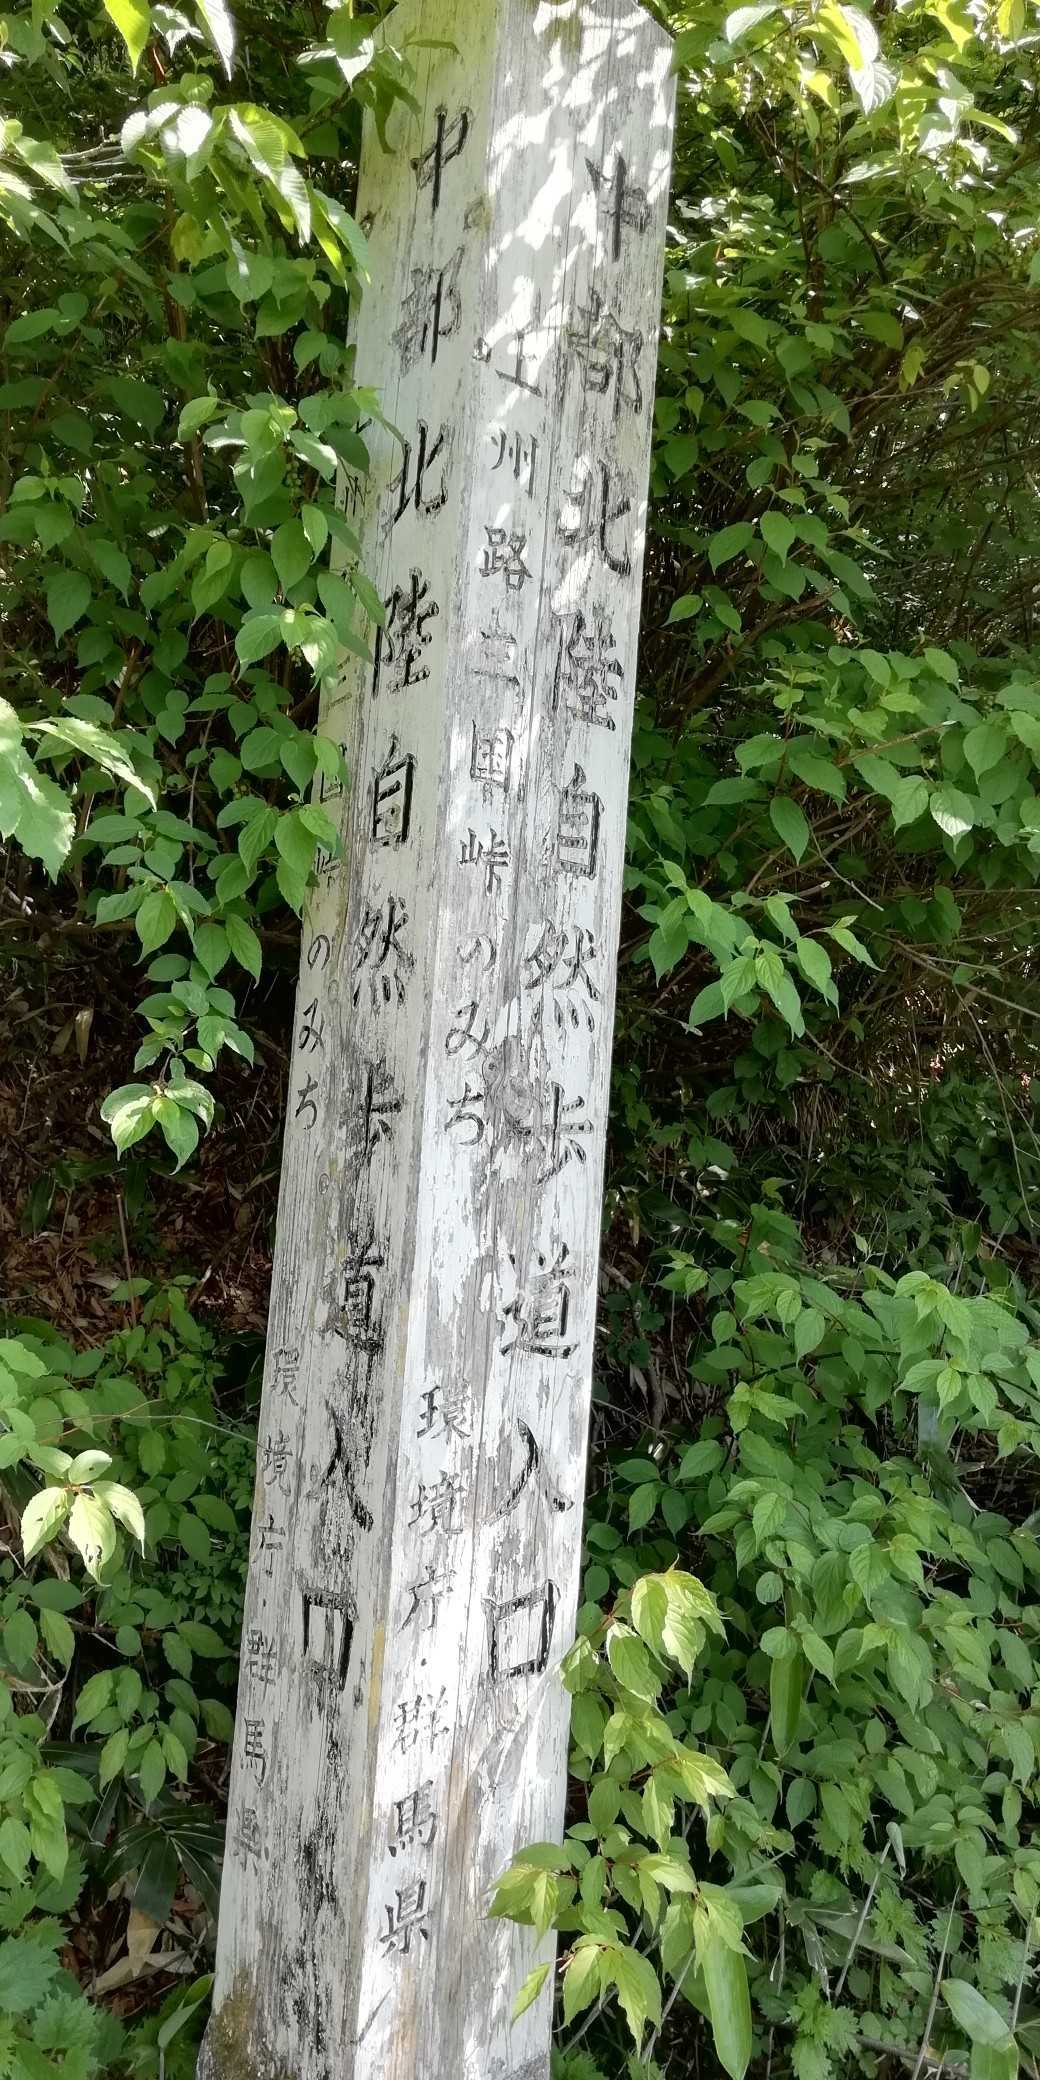 中部北陸自然歩道入口
上州路三国峠のみち
環境庁・群馬県
中部北陸自然歩道入口
のみち
環境庁・群馬県